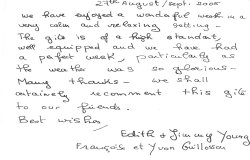 27th August/Sept. 2005
we have enjoyed a wonderful week in a
very calm and relaxing setting -
The gite is of a high standart,
well equipped and we have had
a perfect week, particularly as
the weather was so glorious -
Many thanks - we shall
certainely recomment this gite
to our friends.
Best wishes
Edith & Jimmy Young
François et Yvon Guillosson